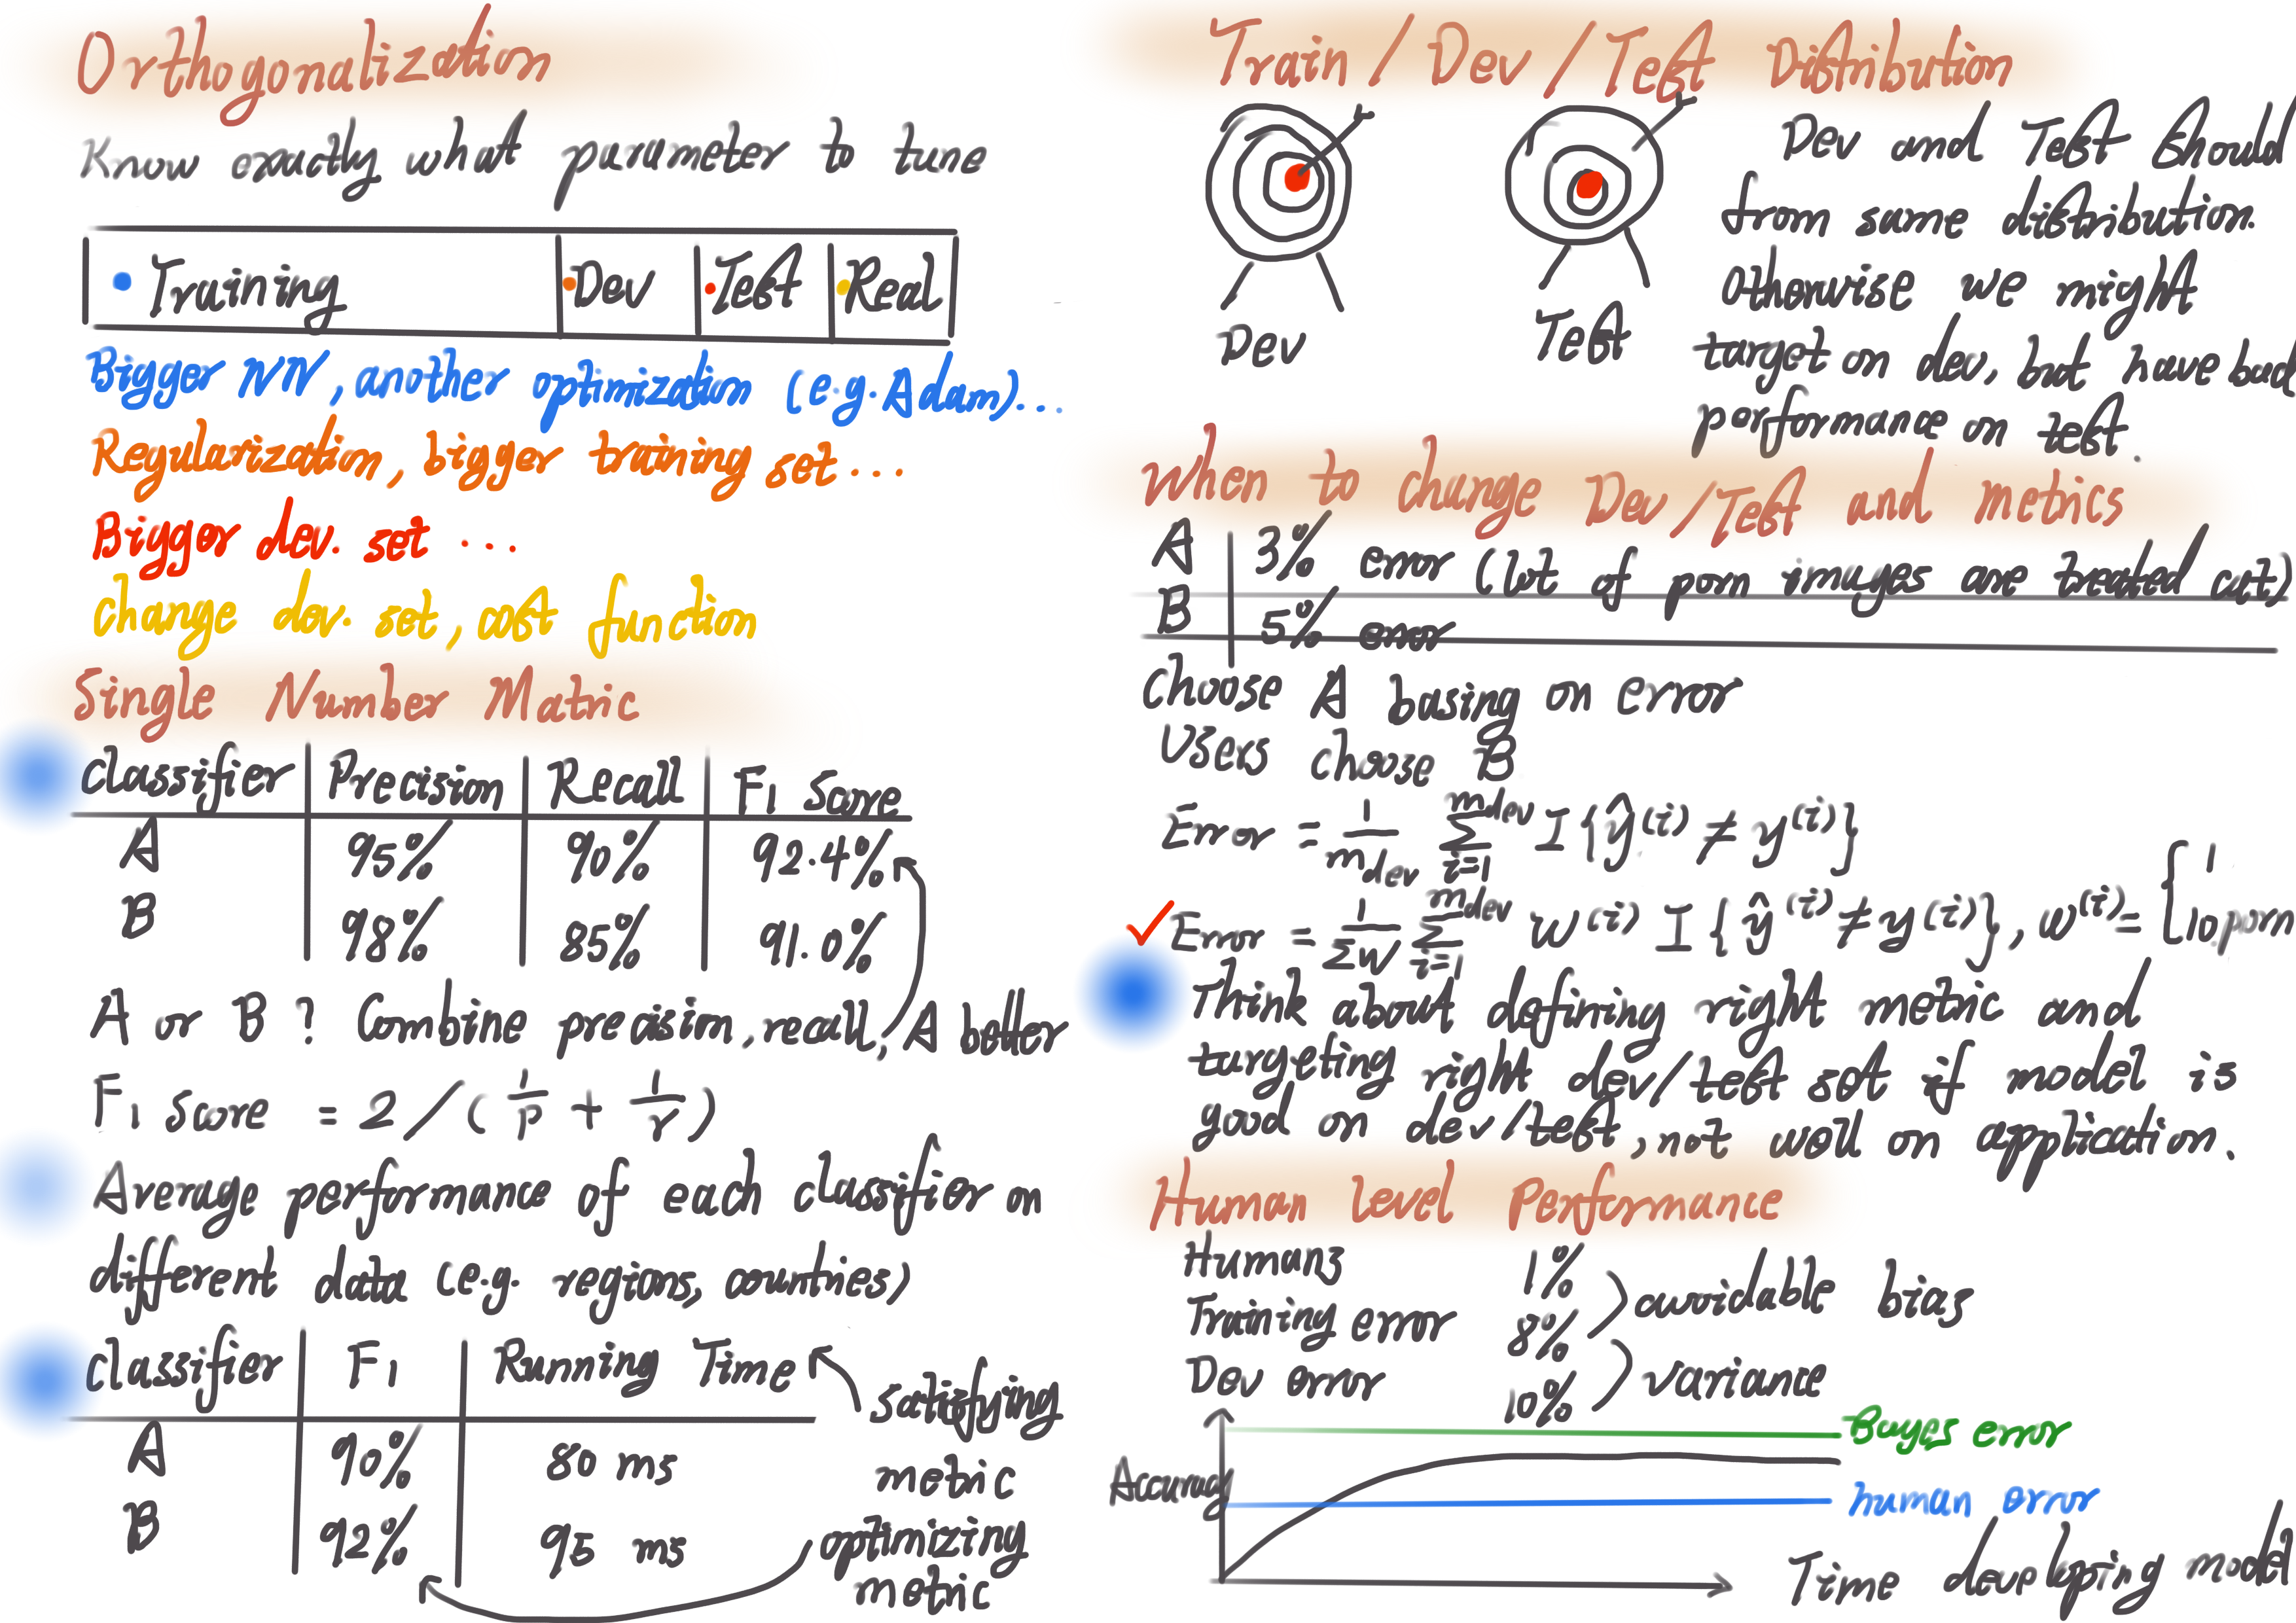 Orthogonalization
Know exactly what parameter to tune
Training Dev Test Real
Bigger NN, another optimization (e.g. Adam)...
Regularization, bigger training set ...
Bigger dev. set ...
change dev. set, cost function
Single Number Matric
Classifier Precision Recall F1 Score
A 95% 90% 92.4%
B 98% 85% 91.0%
A or B ? Combine precision, recall, A better
F1 Score = 2 / (1/p + 1/r)
Average performance of each classifier on
different data (e.g. regions, countries)
Classifier F1 Running Time
A 90% 80 ms
B 92% 95 ms
satisfying
metric
optimizing
metric
Train / Dev / Test Distribution
Dev
Test
Dev and Test should
from same distribution.
Otherwise we might
target on dev, but have bad
performance on test.
When to change Dev/Test and metrics
A 3% error (lot of porn images are treated cat)
B 5% error
Choose A basing on error
Users choose B
Error = 1/m_dev Σ_{i=1}^{m_dev} I{ŷ^(i) ≠ y^(i)}
Error = 1/Σw Σ_{i=1}^{m_dev} w^(i) I{ŷ^(i) ≠ y^(i)}, w^(i) = { 1
10, porn
Think about defining right metric and
targeting right dev/test set if model is
good on dev/test, not well on application.
Human level Performance
Humans 1%
Training error 8%
Dev error 10%
avoidable bias
variance
Accuracy
Bayes error
human error
Time developing model